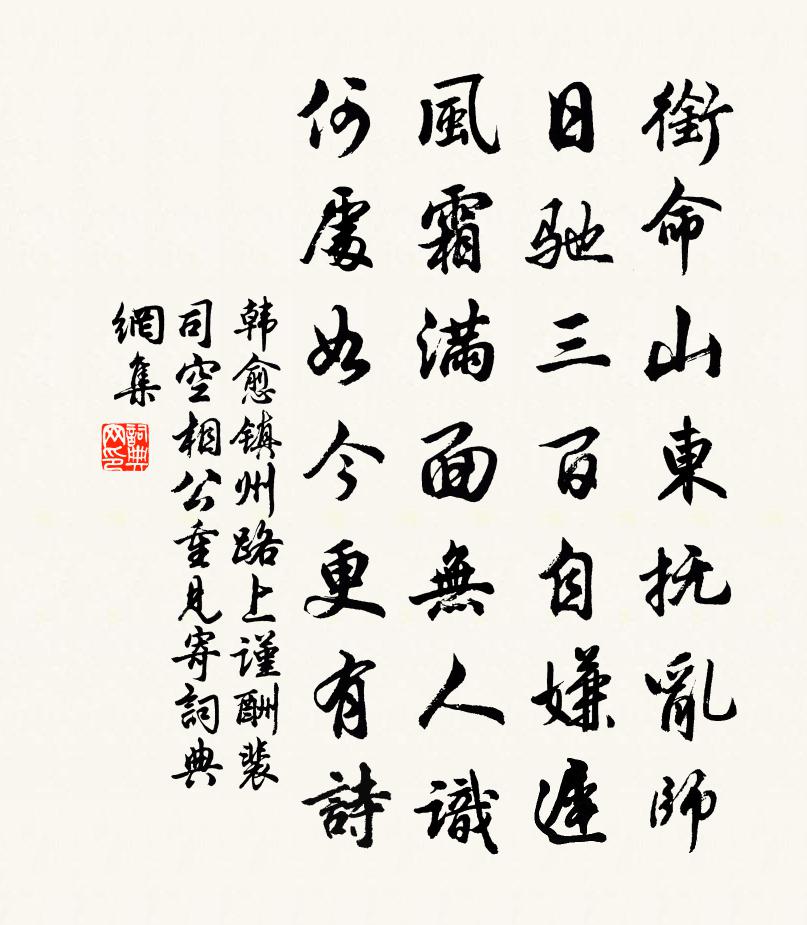 銜命山東抚亂師
日驰三百自嫌遲
風霜満面無人識
何處如今更有詩
韩愈镇州路上谨酬裴
司空相公重見寄詞典
網集
詞典网印